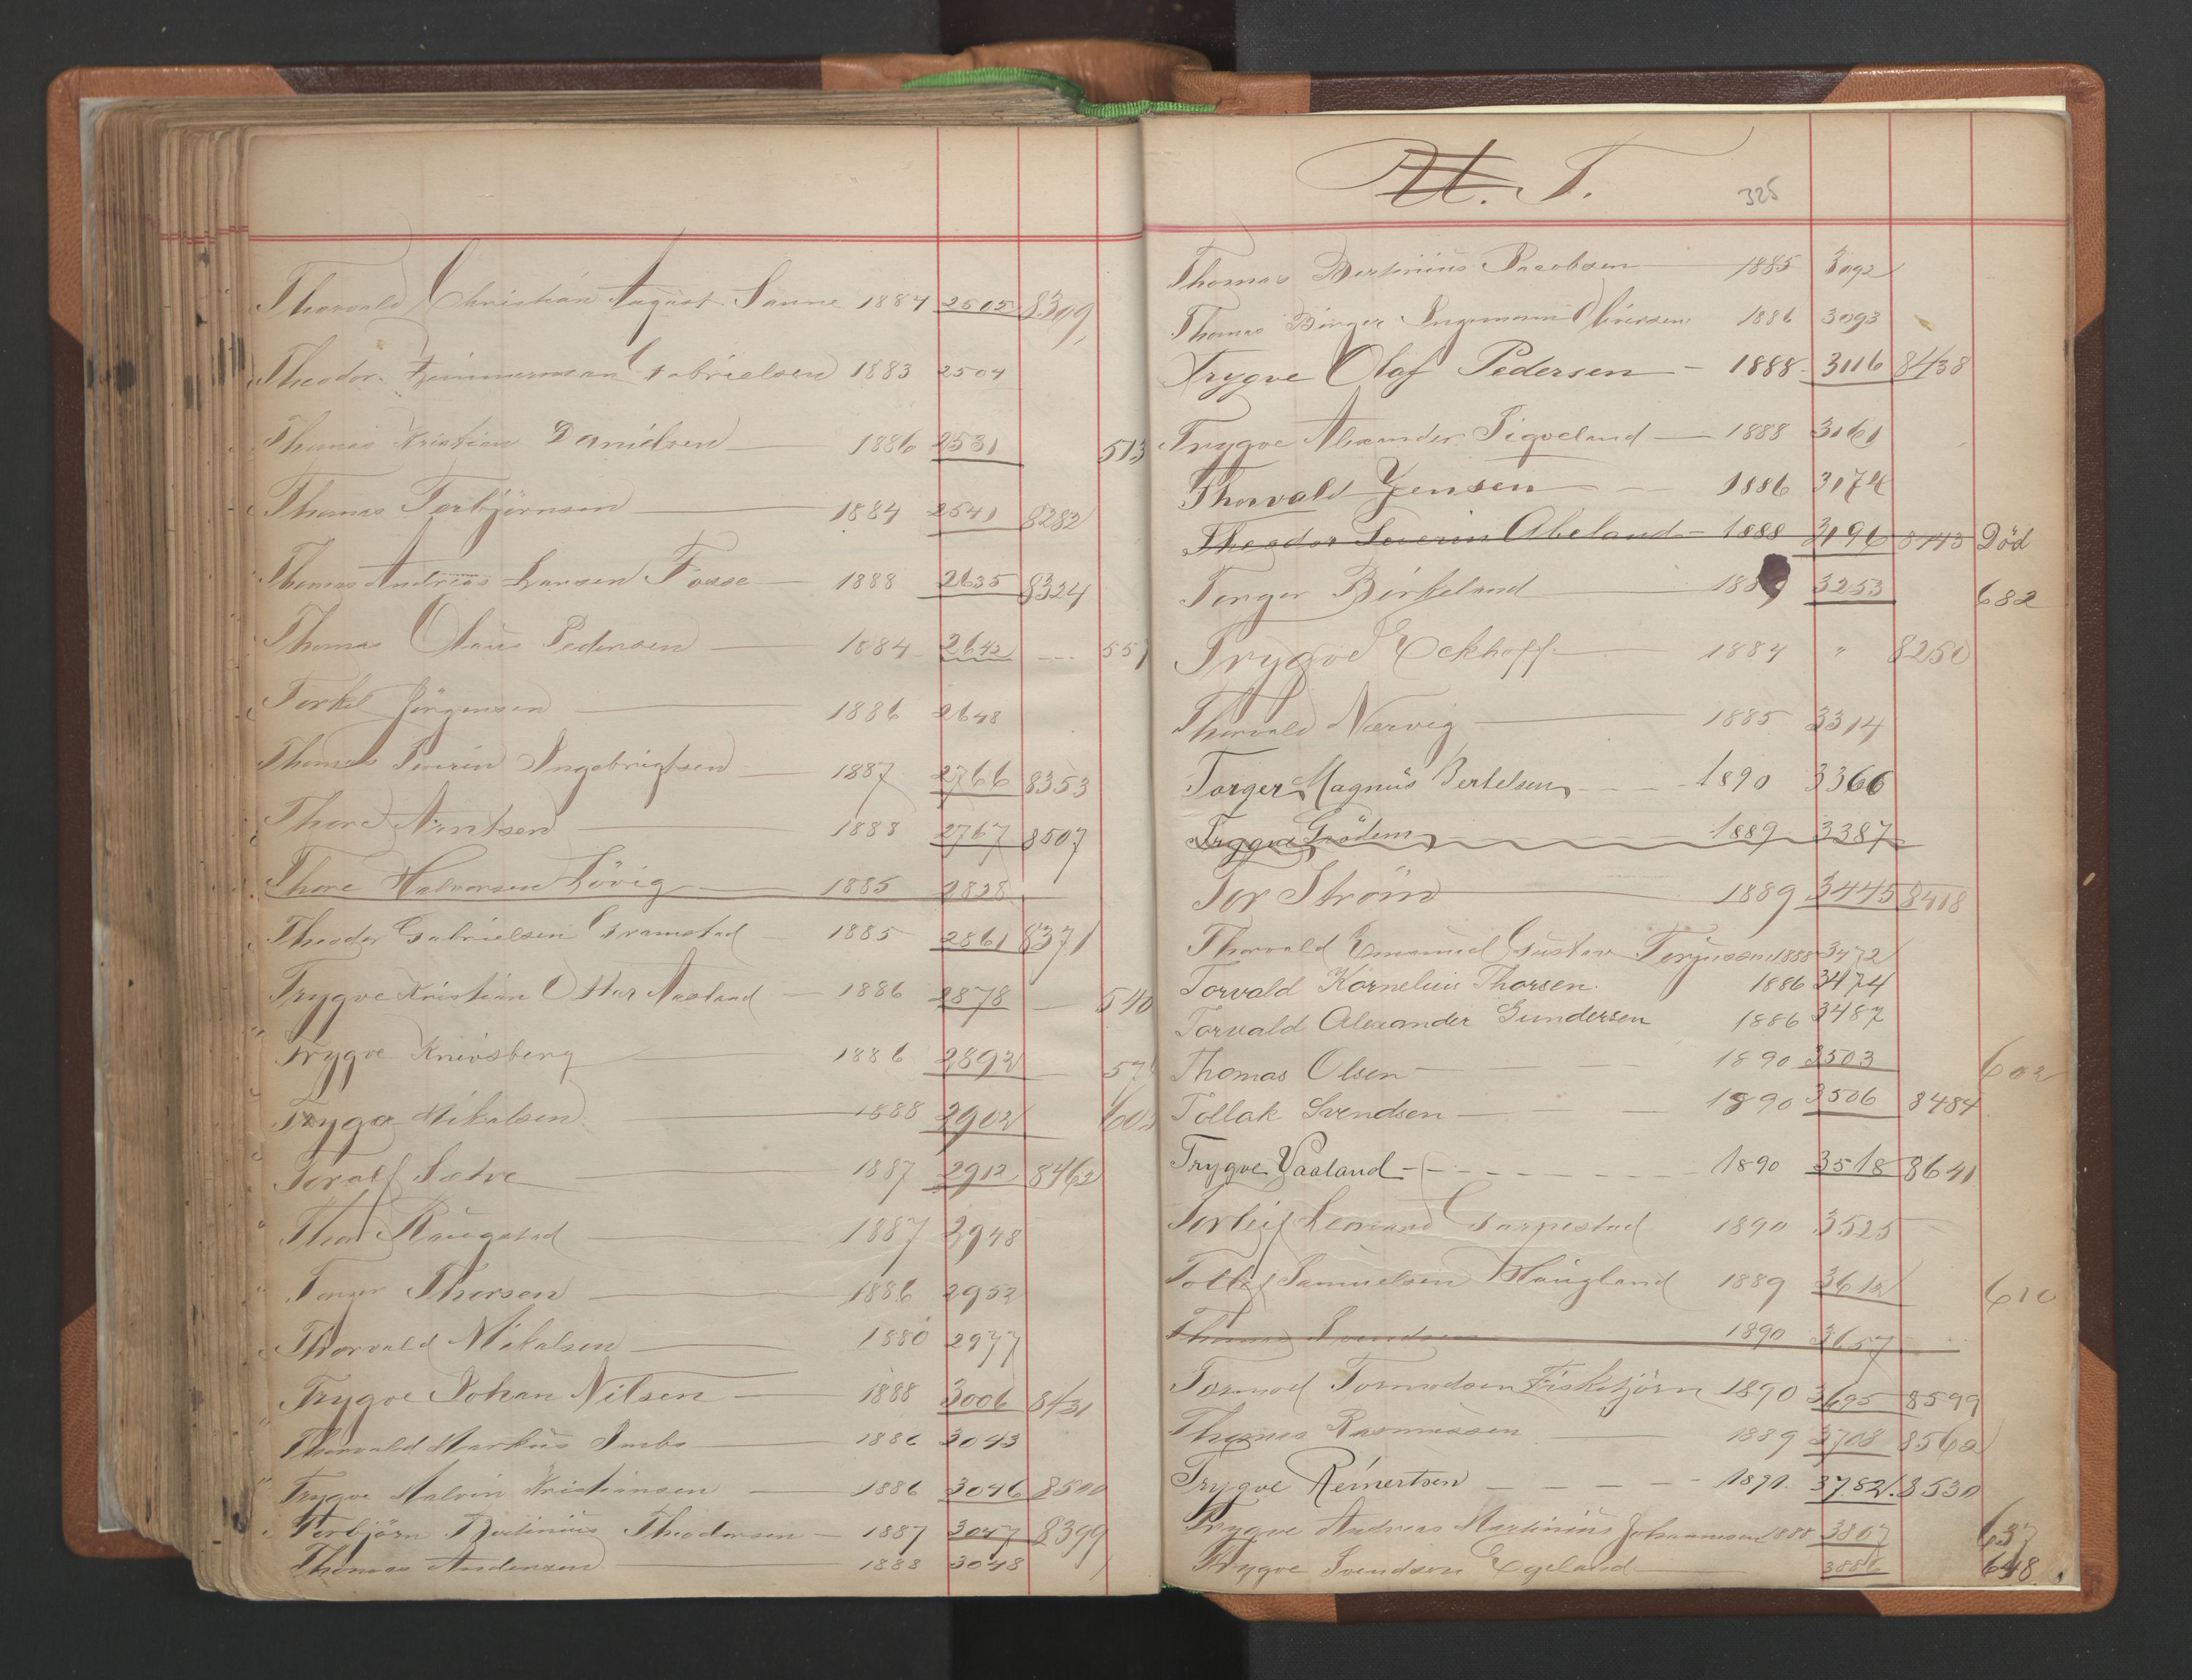 Thorvald Christian August Sanne 1884 2505 8309
Theodor Zimmerman Gabrielsen 1883 2504
Thomas Kristian Danielsen 1886 2531 513
Thomas Torbjörnsen 1884 2541 8282
Thomas Andreas Larsen Fosse 1888 2635 8324
Thomas Olaus Pedersen 1884 2642 551
Torkel Jörgensen 1886 2648
Thomas Severin Ingebrigtsen 1887 2766 8353
Thore 1888 2767 8507
Thore Halvorsen Lövig 1885 2828
Theodor Gabrielsen Gramstad 1885 2861 8371
Trygve Kristian Ottar Aasland 1886 2878 540
Trygve Knivsberg 1886 2892
Trygve Nikalsen 1888 2902
Toralf Sætre 1887 2912 8462
Thor Haugstad 1887 2948
Torger Thorsen 1886 2952
Thorvald Mikalsen 1880 2977
Trygve Johan Nilsen 1888 3006 8431
Thorvald Markus 1886 3043
Trygve Malvin Kristiansen 1886 3046 8500
Torbjörn Bertinius Theodorsen 1887 3047 8399
Thomas Andersen 1888 3048
U. T.
325
Thomas Bertinius Jacobsen 1885 3092
Thomas Birger Ingemann Iversen 1886 3093
Trygve Olaf Pedersen 1888 3116 8438
Trygve Alexander Sigveland 1888 3161
Thorvald Jensen 1886 3174
Theodor Severin Abeland 1888 3196 8145 Död
Torger Birkeland 1889 3253 682
Trygve Eckhoff 1884 " 8250
Thorvald Nærvig 1885 3314
Torger Magnus Bertelsen 1890 3366
Trygve Grödem 1889 3387
Tor Ström 1889 3445 8418
Thorvald Emanuel Gustav Terjussen 1888 3472
Torvald Kornelius Thorsen 1886 3474
Torvald Alexander Gundersen 1886 3487
Thomas Olsen 1890 3503 602
Tollak Svendsen 1890 3506 8484
Trygve Vaaland 1890 3518 8641
Torleif Leonard Garpestad 1890 3525
Tollef Samuelsen Haugland 1889 3612 610
Thomas Svendsen 1890 3657
Tormod Tormodsen Fisketjörn 1890 3695 8599
Thomas Rasmussen 1889 3708 8562
Trygve Reinertsen 1891 3782 8530
Trygve Andreas Martinius Johannesen 1888 3807 637
Trygve Svendsen Egeland 3886 648